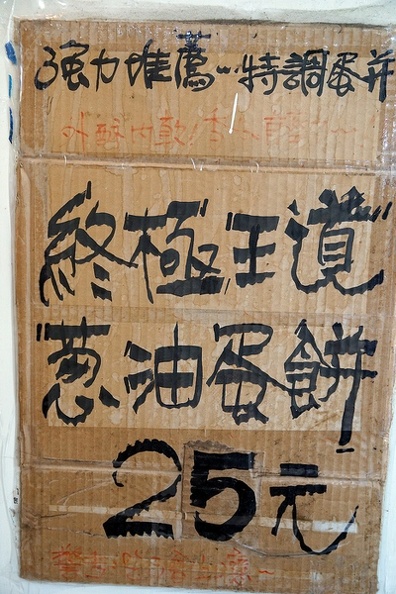 強力推薦~特調蛋餅
外酥內軟!香
終極"王道"
蔥油蛋餅!
25元